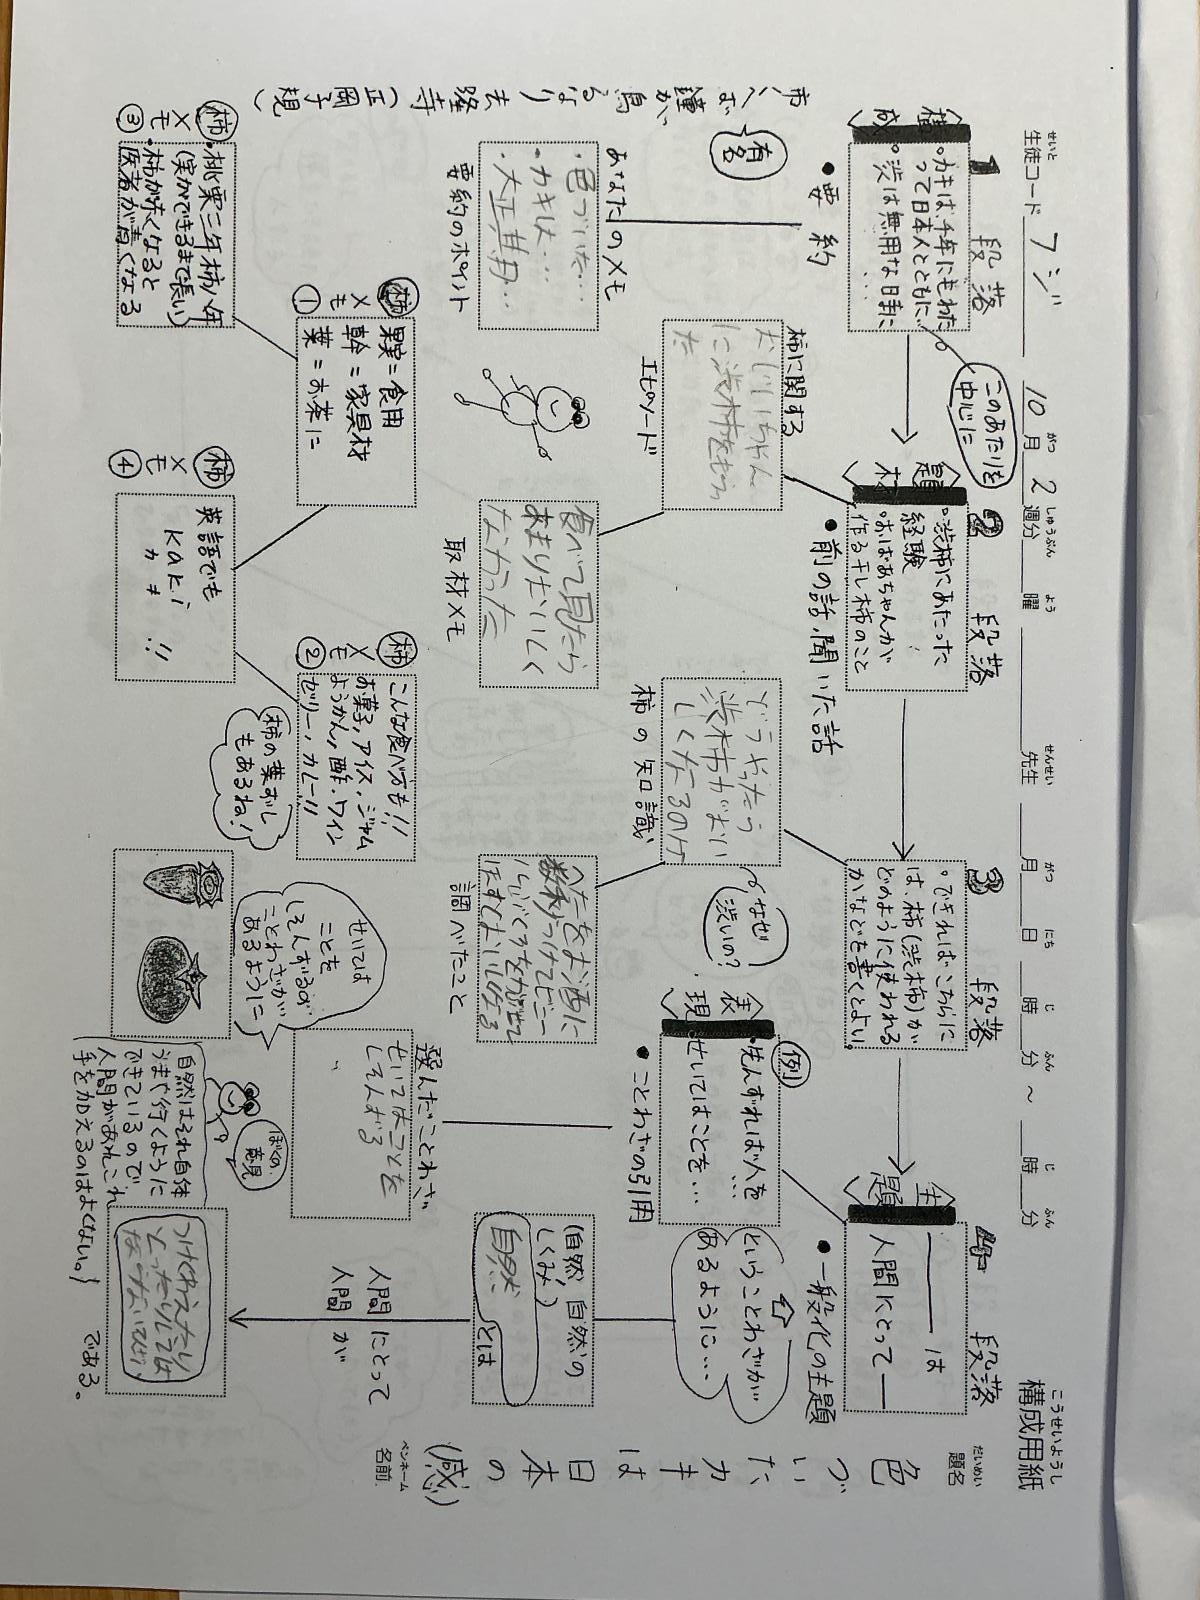 構成用紙
こうせいようし
題名
だいめい
色づいたカキは日本の(感)
ペンネーム
名前
生徒コード フジ 10月2週分 曜 先生 月 日 時 分 〜 時 分
せいと がつ しゅうぶん よう せんせい がつ にち じ ふん じ ふん
1段落
〈構成〉
・カキは、千年にもわた
って日本人とともに…
・渋は無用な日時に
…
このあたりを
中心に
●要約
有名
柿くへば鐘が鳴るなり法隆寺(正岡子規)
あなたのメモ
・色づいた…
・カキは…
・大正期…
要約のポイント
2段落
〈題材〉
・渋柿にあたった
経験
・おばあちゃんが
作る干し柿のこと
●前の話、聞いた話
柿に関する
おじいちゃん
に渋柿をもらっ
た
エピソード
食べて見たら
あまりおいしく
なかった
取材メモ
3段落
・できればこちらに
は、柿(渋柿)が
どのように使われる
かなどを書くとよい。
なぜ
渋いの?
どうやったら
渋柿がおい
しくなるのか
柿の知識
へたをお酒に
数秒つけてビニー
ルぶくろを
調べたこと
4段落
〈主題〉
――は
人間にとって―
●一般化の主題
〈表現〉
例
・先んずれば人を
…
・せいてはことを…
●ことわざの引用
ということわざが
あるように…
選んだことわざ
せいてはことを
しそんずる
せいては
ことを
しそんずるの
ことわざが
あるように
(自然、自然の
しくみ)
自然
とは
人間にとって
人間が
つけくわえたり
とったりしては
である。
ぼくの
意見
自然はそれ自体
うまく行くように
できているので
人間があれこれ
手を加えるのはよくない。
柿メモ①
果実=食用
幹=家具材
葉=お茶に
柿メモ②
こんな食べ方も!!
お菓子、アイス、ジャム
ようかん、酢、ワイン
ゼリー、カレー!!
柿の葉ずし
もあるね!
柿メモ③
・桃栗三年柿八年
(実ができるまで長い)
・柿が赤くなると
医者が青くなる
柿メモ④
英語でも
kaki
カキ
!!